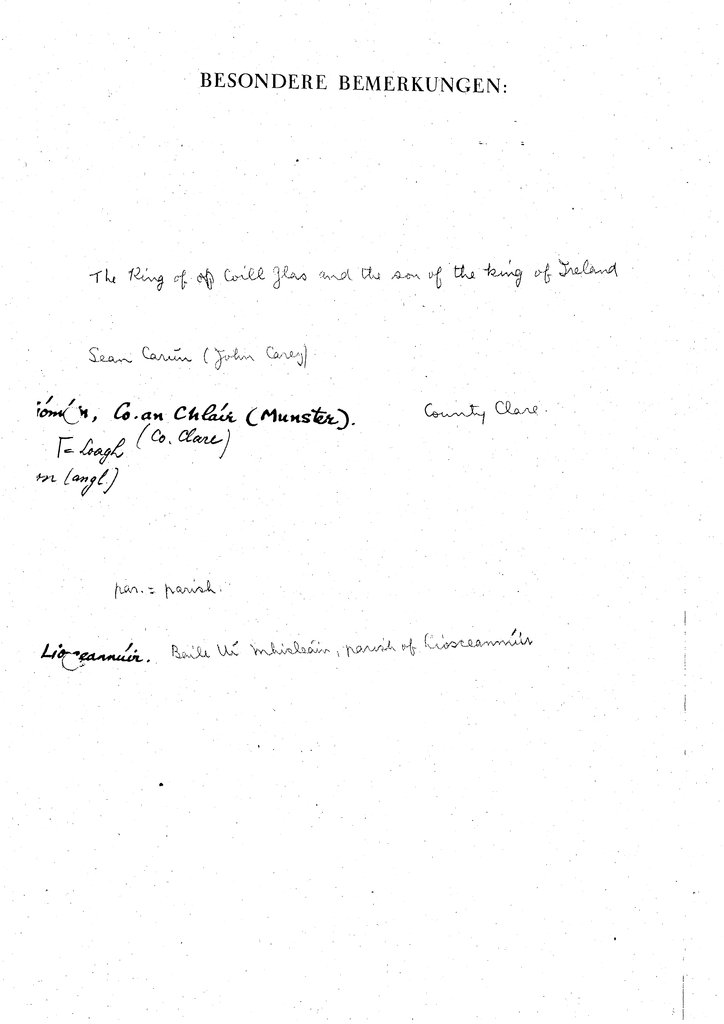 BESONDERE BEMERKUNGEN:
The King of Coill Glas and the son of the king of Ireland
Sean Carún (John Carey)
Co. an Chláir (Munster). County Clare.
= Loagh (Co. Clare)
(angl.)
par. = parish.
Liosceannúir. Baile Uí Mhisleáin, parish of Liosceannúir